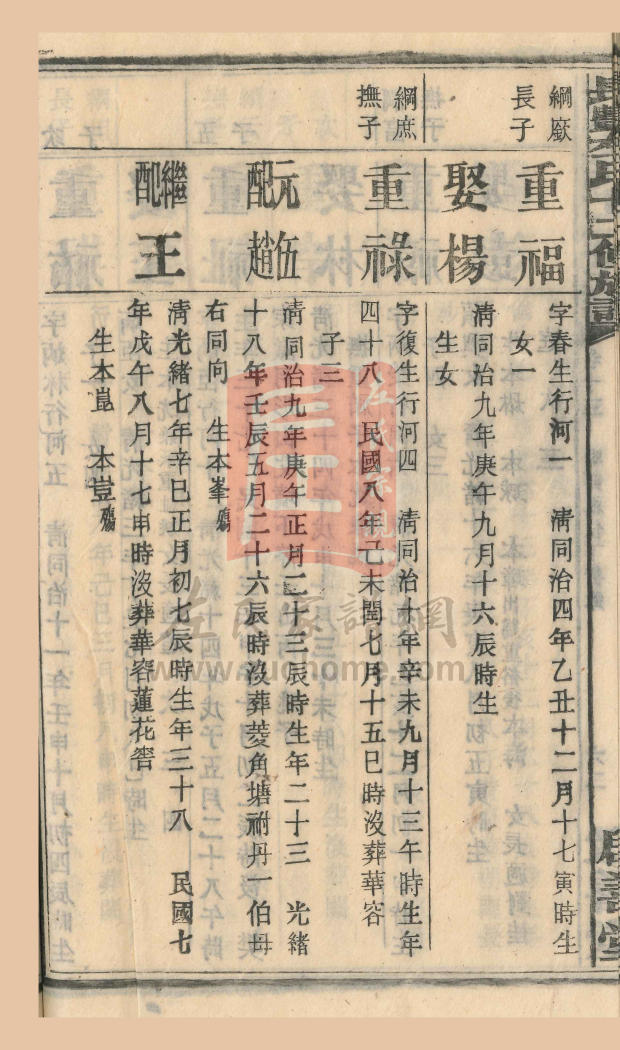 綱廞
長子
重福
字春生行河一 清同治四年乙丑十二月十七寅時生
女一
娶楊
清同治九年庚午九月十六辰時生
生女
綱庶
撫子
重祿
字復生行河四 清同治十年辛未九月十三午時生年
四十八 民國八年己未閏七月十五巳時沒葬華容
子三
元配伍趙
清同治九年庚午正月二十三辰時生年二十三 光緒
十八年壬辰五月二十六辰時沒葬菱角塘祔丹一伯母
右同向 生本峯殤
繼配王
清光緒七年辛巳正月初七辰時生年三十八 民國七
年戊午八月十七申時沒葬華容蓮花
生本崑 本豈殤
www.zuohome.com